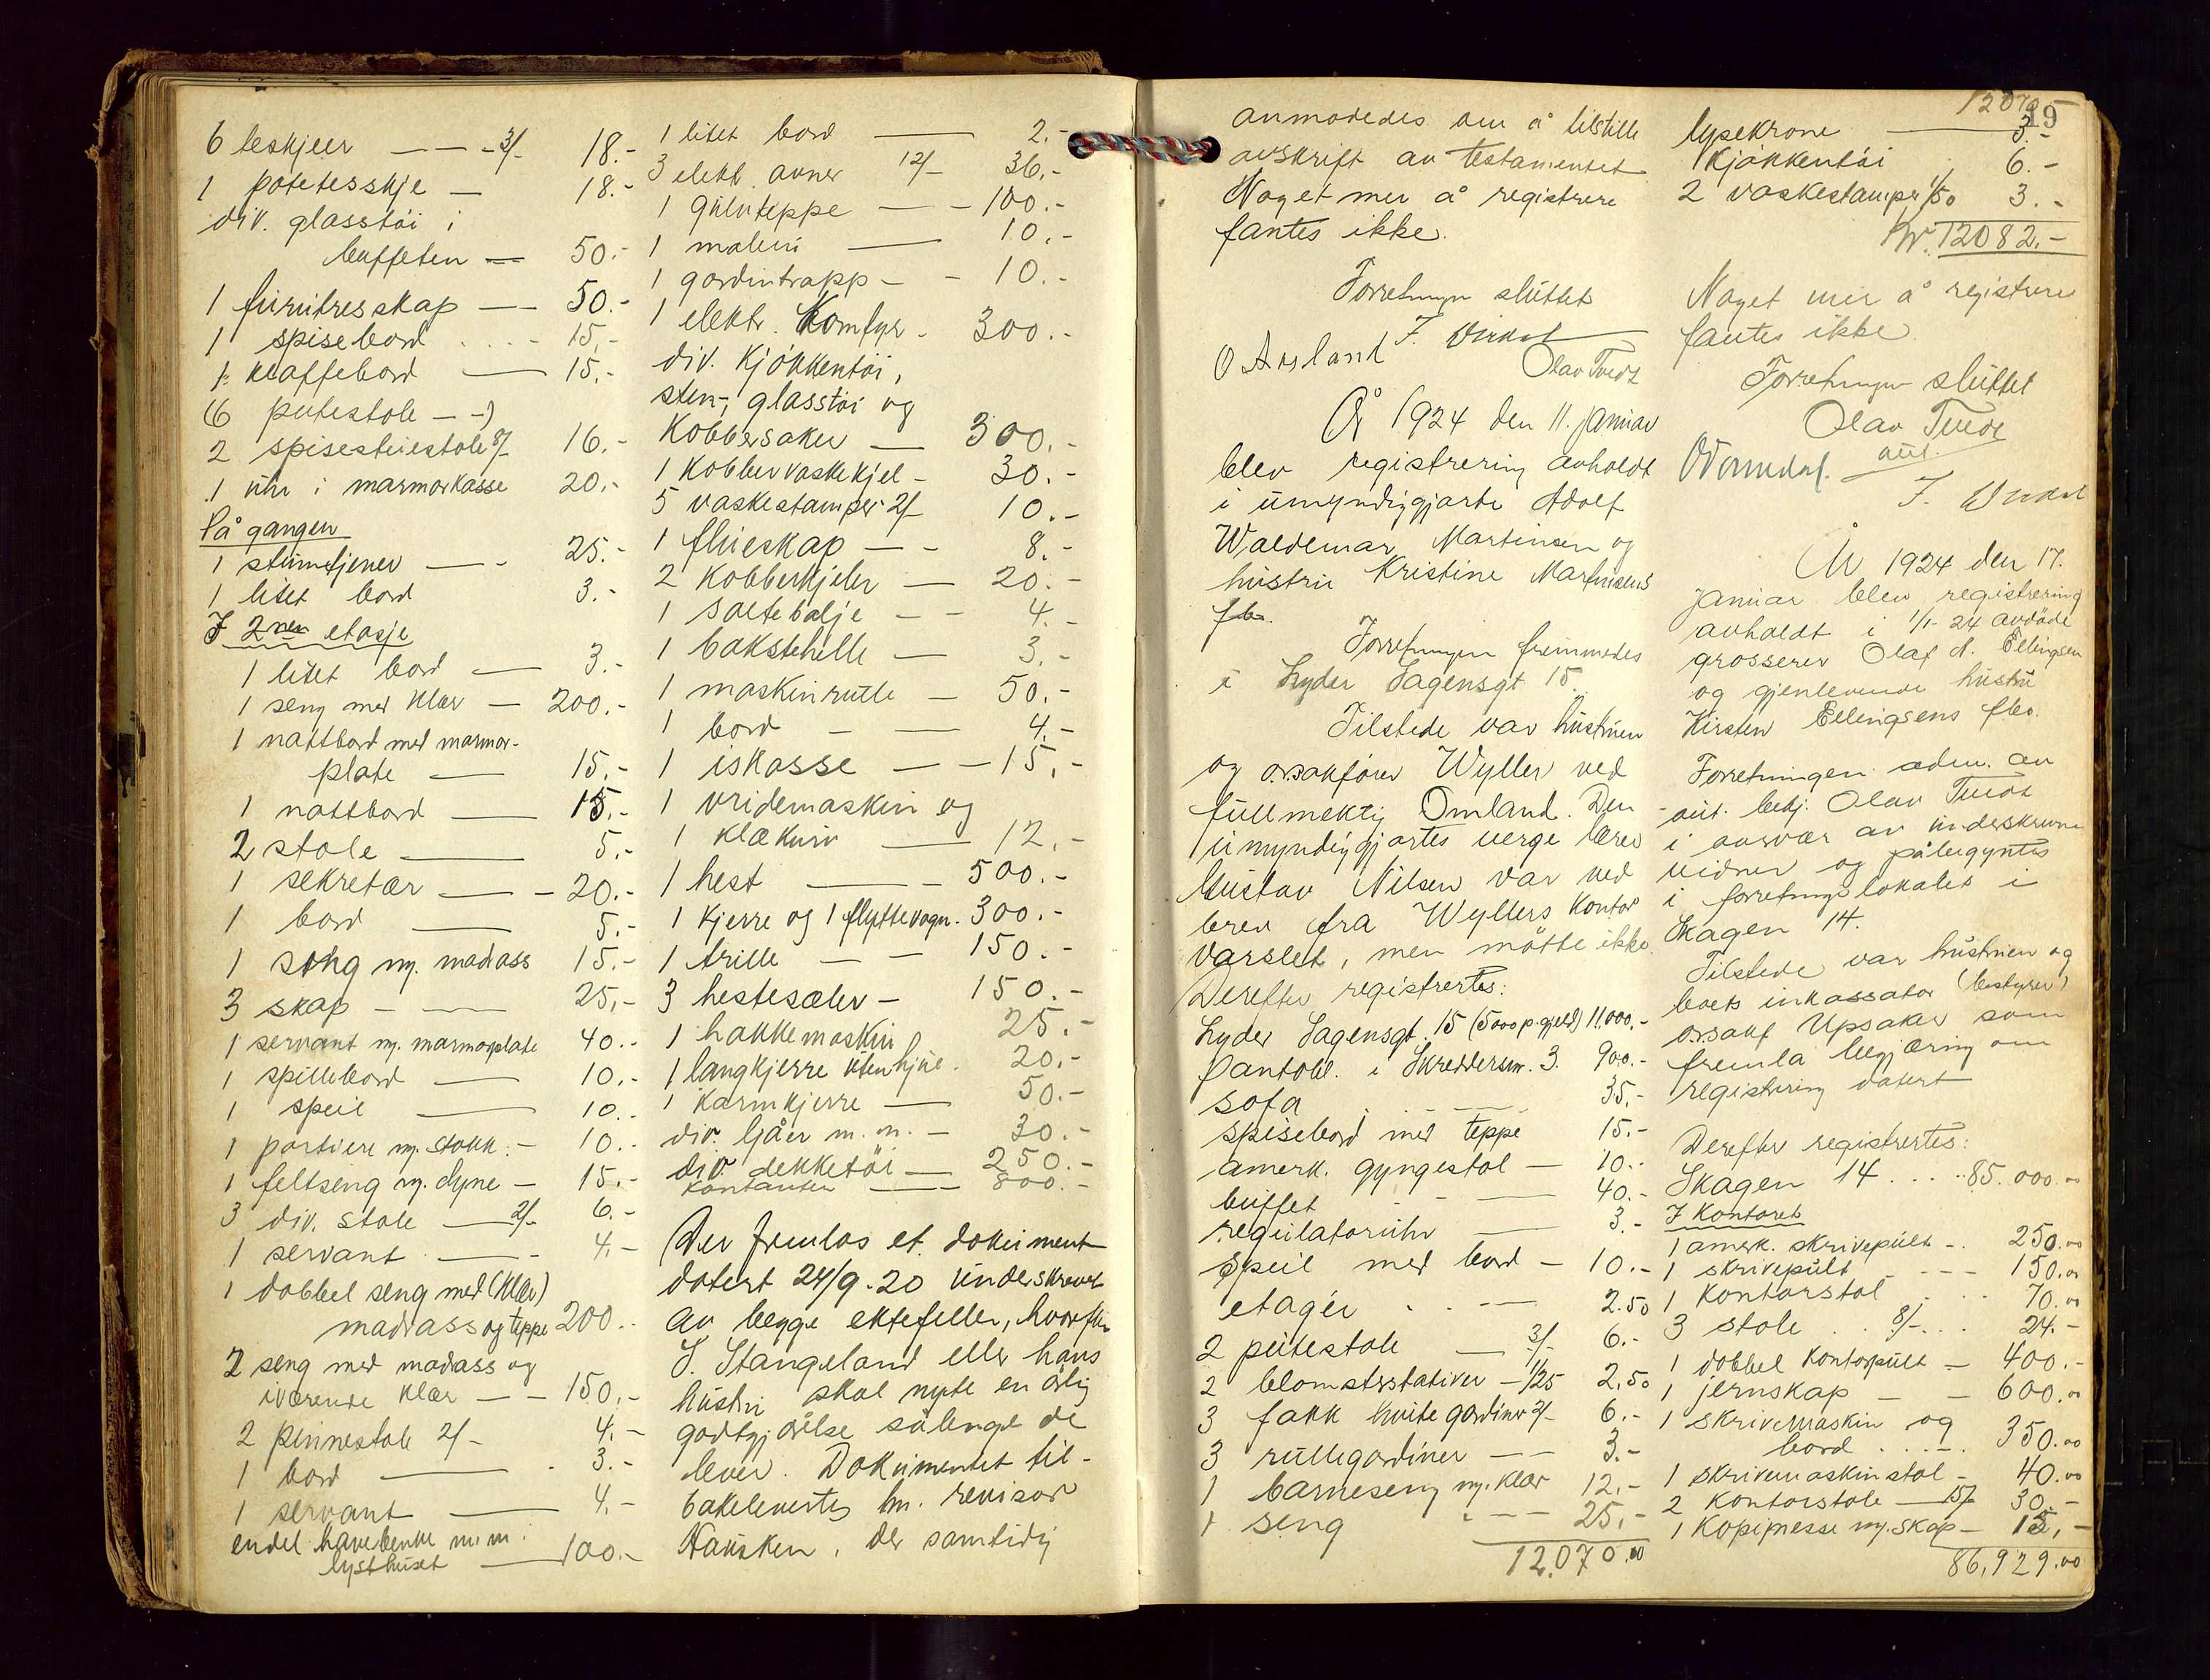 6 teskjeer — — - 3/- 18.-
1 potetesskje — 18.-
div. glasstöi i
buffeten — 50.-
1 furutresskap — 50.-
1 spisebord . . . - 15.-
1 kaffebord — 15.-
(6 putestole - -)
2 spisestuestole 8/- 16.-
1 uhr i marmorkasse 20.-
På gangen
1 stumtjener — - 25.-
1 litet bord 3.-
I 2nen etasje
1 litet bord — 3.-
1 seng med klær — 200.-
1 nattbord med marmor-
plate — 15.-
1 nattbord — 15.-
2 stole — 5.-
1 sekretær — - 20.-
1 bord — 5.-
1 seng m. madrass 15.-
3 skap - — 25.-
1 servant m. marmorplate 40.-
1 spillebord — 10.-
1 speil — 10.-
1 portiere m. stokk. - 10.-
1 feltseng m. dyne - 15.-
3 div. stole — 2/- 6.-
1 servant — - 4.-
1 dobbel seng med (klær)
madrass og teppe 200.-
2 seng med madrass og
iværende klær — - 150.-
2 pinnestole 2/- 4.-
1 bord — - 3.-
1 servant — 4.-
endel havebenke m. m. i
lysthuset — 100.-
1 litet bord — 2.-
3 elektr. ovner 12/- 36.-
1 gulvteppe — - 100.-
1 maleri — 10.-
1 gardintrapp - - 10.-
1 elektr. Komfyr - 300.-
div. Kjökkentöi,
sten-, glasstöi og
Kobbersaker — 300.-
1 Kobbervaskekjel - 30.-
5 vaskestamper 2/- 10.-
1 flueskap — - 8.-
2 Kobberkjeler — 20.-
1 saltebalje — - 4.-
1 bakstehelle — 3.-
1 maskinrulle — 50.-
1 bord - — 4.-
1 iskasse — - 15.-
1 vridemaskin og
1 klækurv — 12.-
1 hest — - 500.-
1 Kjerre og 1 flyttevogn. 300.-
1 trille — - 150.-
3 hesteseler - 150.-
1 hakkemaskin 25.-
1 langkjerre uten hjul. 20.-
1 Karmkjerre — 50.-
div. ljåer m. m. - 30.-
div. dekketöi — 250.-
Kontanter — 800.-
Der fremlas et dokument
datert 24/9-20 underskrevet
av begge ektefeller, hvorefter
J. Stangeland eller hans
hustru skal nyte en årlig
godtgjörelse sålenge de
lever. Dokumentet til-
bakelevertes hr. revisor
Hausken, der samtidig
anmodedes om å tilstille
avskrift av testamentet
Noget mer å registrere
fantes ikke.
Forretningen sluttet
O Aarsland
Olav Tvedt
År 1924 den 11. januar
blev registrering avholdt
i umyndiggjorte Adolf
Waldemar Martinsen og
hustru Kristine Martinsens
fb.
Forretningen fremmedes
i Lyder Sagensgt 15.
Tilstede var hustruen
og o.r.sakförer Wyller ved
fullmektig Omland. Den
umyndiggjortes verge lærer
Gustav Nilsen var ved
brev fra Wyllers kontor
varslet, men mötte ikke.
Derefter registrertes:
Lyder Sagensgt. 15 (5000 p. gjeld) 11.000.-
Pantobl. i Skreddersm. 3. 900.-
sofa . - — 35.-
spisebord med teppe 15.-
amerk. gyngestol — 10.-
buffet - — 40.-
regulatoruhr — 3.-
speil med bord — 10.-
etagér . . — 2.50
2 putestole — 3/- 6.-
2 blomsterstativer - 1/25 2.50
3 fakk hvite gardiner 2/- 6.-
3 rullegardiner — 3.-
1 barneseng m. klær 12.-
1 seng . - — 25.-
12.070.00
12070
19
lysekrone — 3.-
Kjökkentöi 6.-
2 vaskestamper 1/50 3.-
Kr. 12082.-
Noget mer å registrere
fantes ikke.
Forretningen sluttet
Olav Tvedt
aut.
År 1924 den 17.
januar blev registrering
avholdt i 1/1-24 avdöde
grosserer Olaf A. Ellingsen
og gjenlevende hustru
Kirsten Ellingsens fbo.
Forretningen adm. av
aut. betj. Olav Tvedt
i overvær av underskrevne
vidner og påbegyntes
i forretningslokalet i
Skagen 14.
Tilstede var hustruen og
boets inkassator (bestyrer)
o.r.sakf Upsaker som
fremla begjæring om
registrering datert
Derefter registrertes:
Skagen 14 . . . . 85.000.00
I Kontoret
1 amerk. skrivepult - . 250.00
1 skrivepult - - - 150.00
1 Kontorstol . . . 70.00
3 stole . . 8/- . . 24.-
1 dobbel Kontorpult — 400.-
1 jernskap — - 600.00
1 skrivemaskin og
bord . . . - . 350.00
1 skrivemaskinstol - 40.00
2 Kontorstole — 15/- 30.-
1 Kopipresse m. skap - 15.-
86,929.00